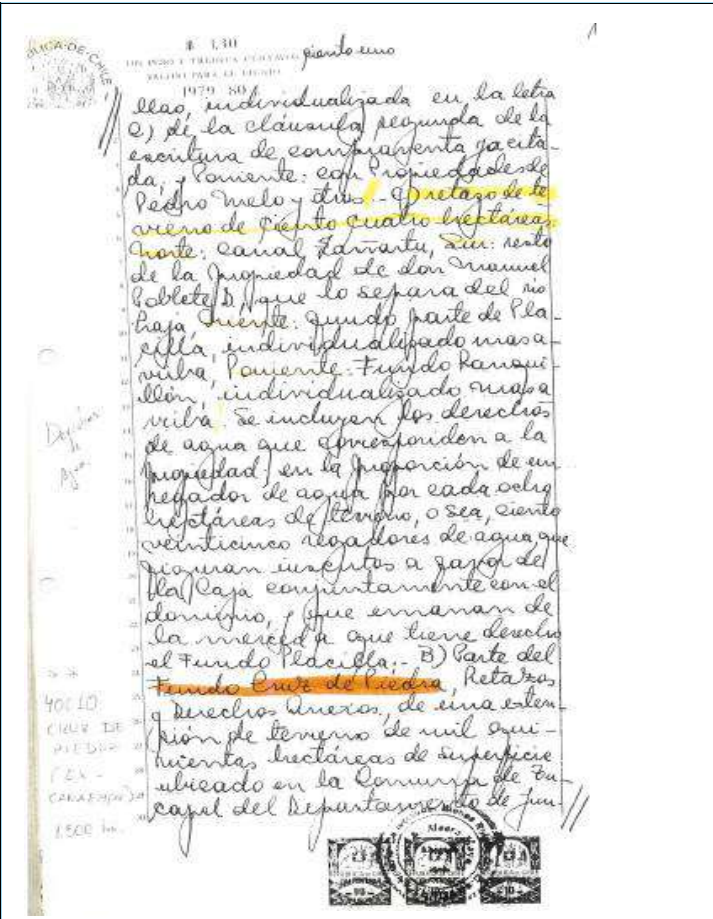 1
$ 1,30
ciento uno
UN PESO Y TREINTA CENTAVOS
VALIDO PARA EL BIENIO
1979 80
llas, individualizada en la letra
e) de la cláusula segunda de la
escritura de compraventa ya cita-
da, y Poniente: con Propiedades de
Pedro Melo y otros.- retazo de te
rreno de ciento cuatro hectáreas:
Norte: canal Zañartu, Sur: resto
de la propiedad de don Manuel
Poblete D, que lo separa del río
Laja, Oriente: Fundo parte de Pla-
cilla, individualizado mas a-
rriba, Poniente: Fundo Ranqui-
llón, individualizado mas a
rriba. Se incluyen los derechos
de agua que corresponden a la
propiedad, en la proporción de un
regador de agua por cada ocho
hectáreas de terreno, o sea, ciento
veinticinco regadores de agua que
figuran inscritos a favor de
la Caja conjuntamente con el
dominio, y que emanan de
la merced a que tiene derecho
el Fundo Placilla.- B) Parte del
Fundo Cruz de Piedra, Retazos
y Derechos Anexos, de una exten-
sión de terreno de mil qui-
nientas hectáreas de superficie
ubicado en la Comuna de Tu-
capel del Departamento de Yun-
CRUZ DE
PIEDRA
1.500 há.